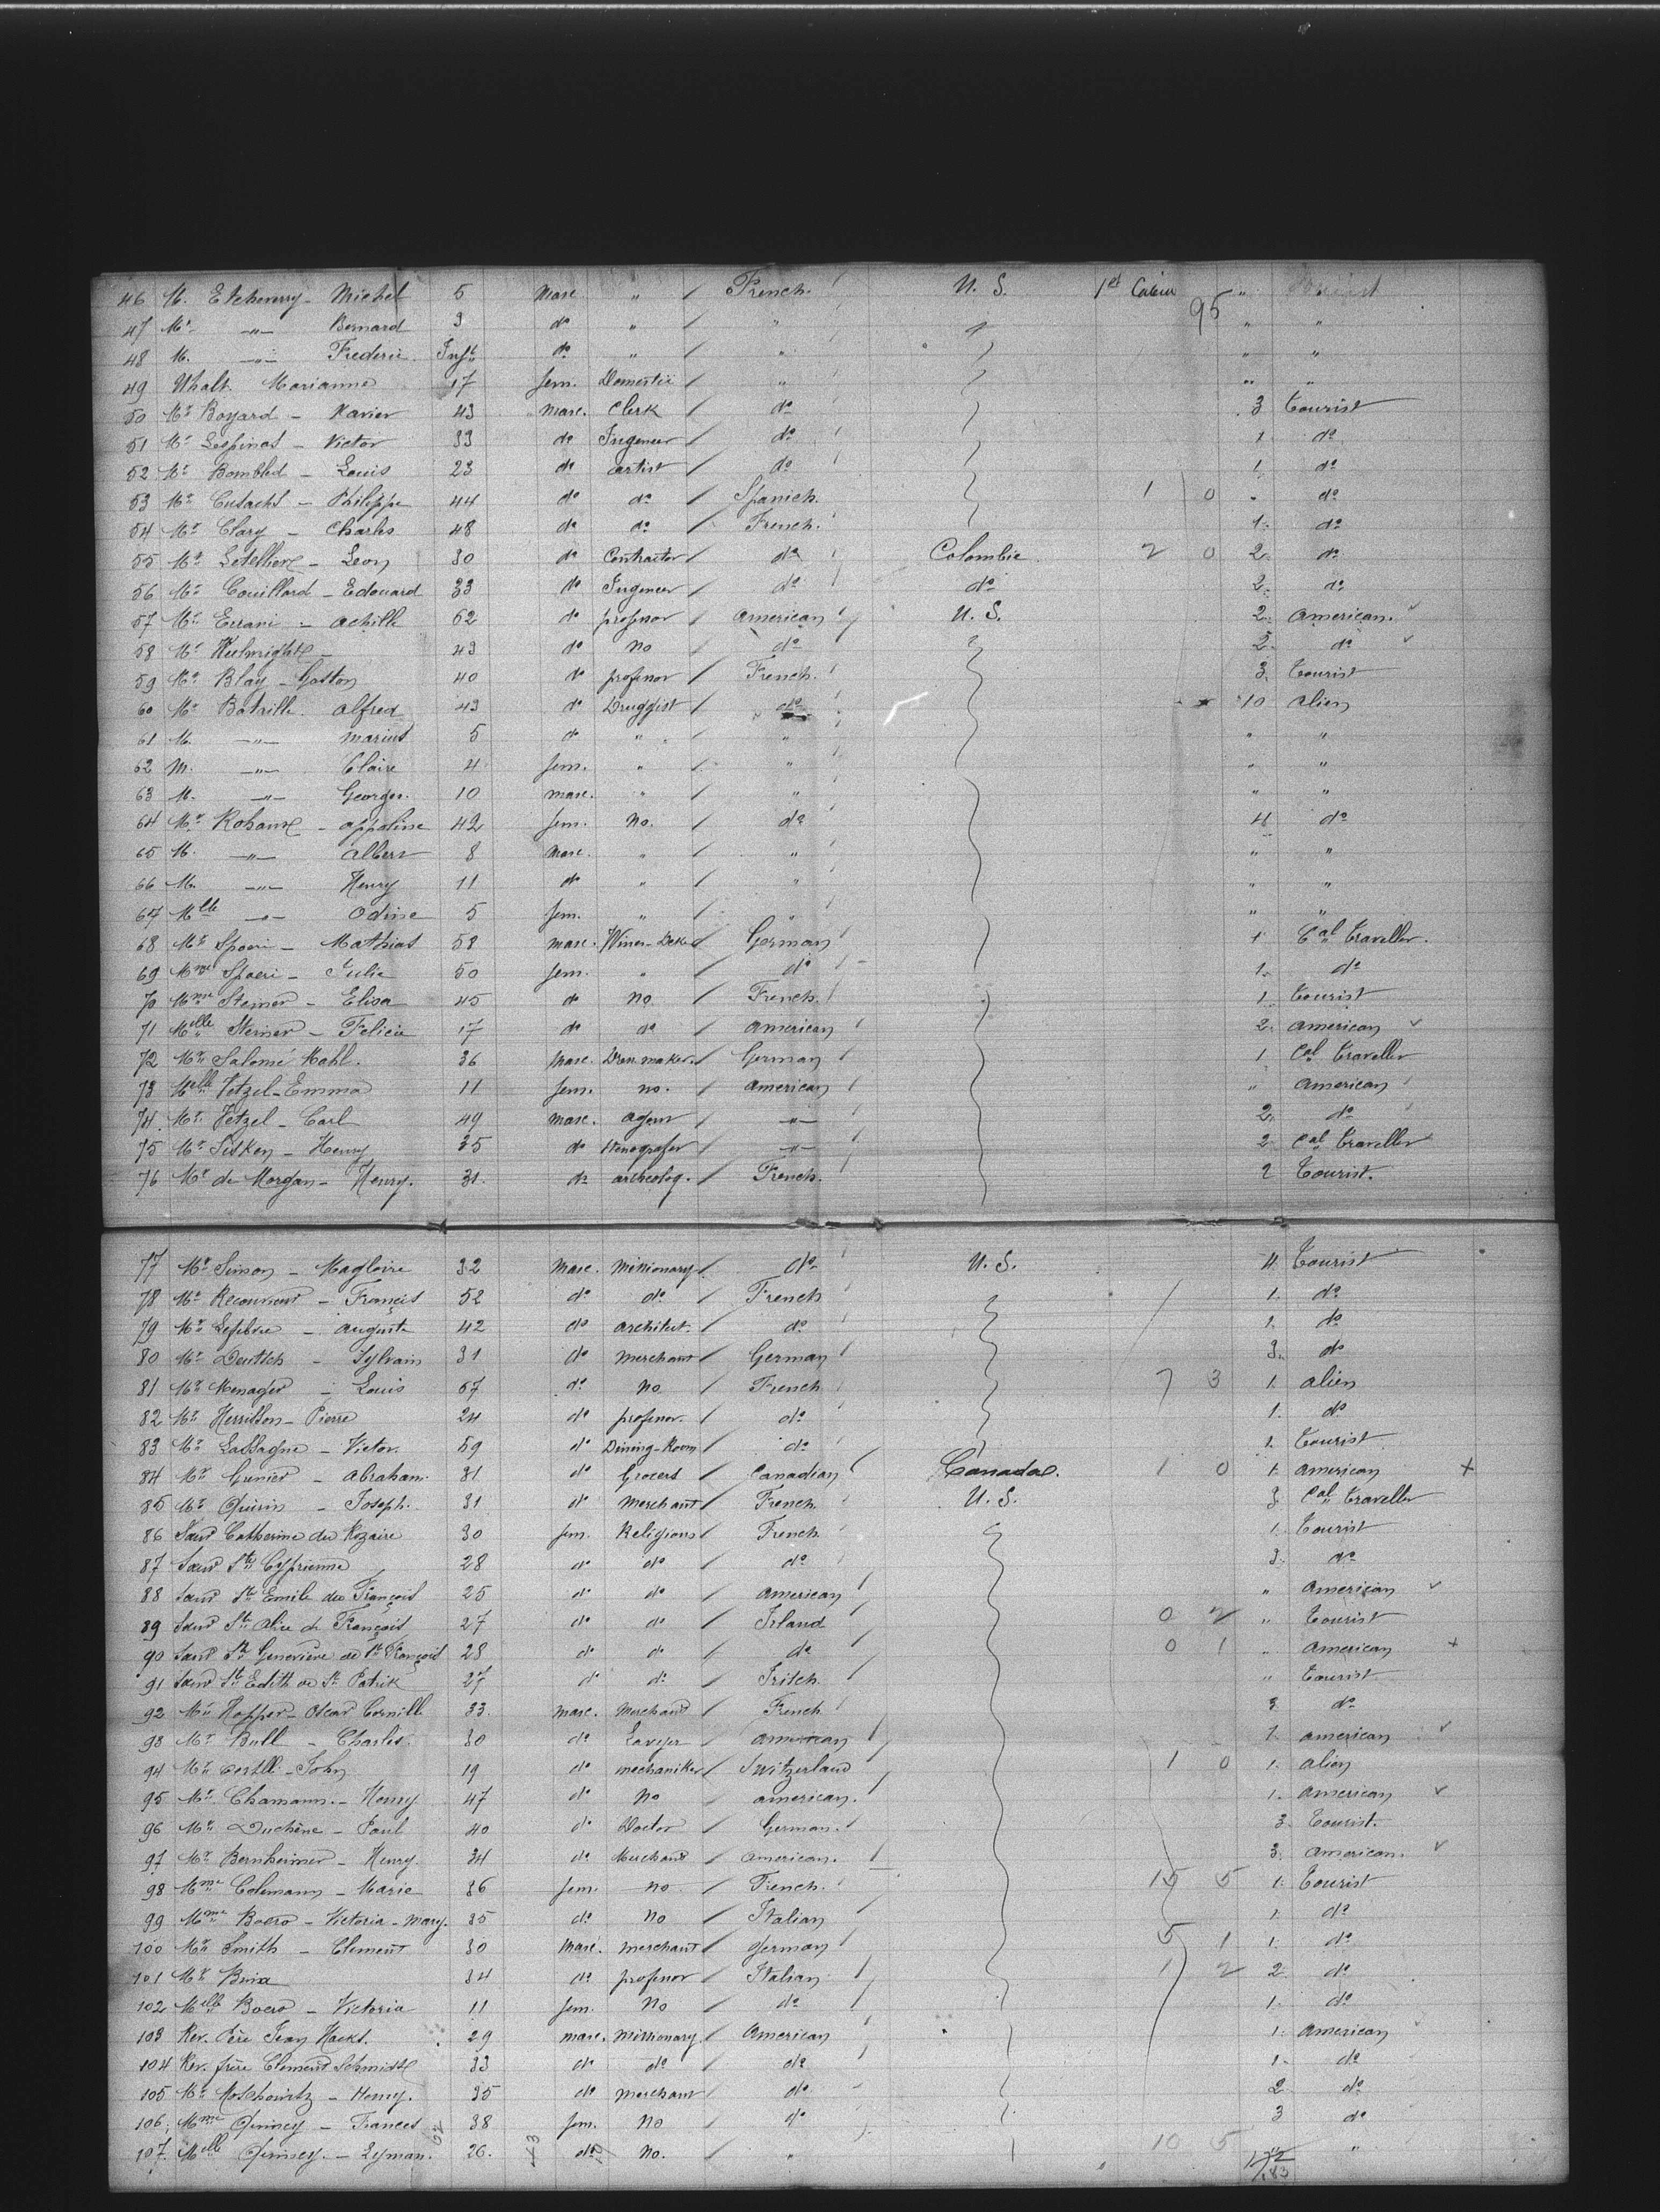 46 M. Etcheverry - Michel 5 masc " / French U. S. 1st Cabin " Tourist
95
47 Mr -"- Bernard 3 do " / " " "
48 M. -"- Frederic Inft do " / " " "
49 Marianne 17 fem. Domestic / " " "
50 Mr Boyard - Xavier 43 masc. Clerk / do 3 tourist
51 Mr Lespinas - Victor 33 do Ingeneer / do 1 do
52 Mr Bombled - Louis 23 do artist / do 1 do
53 Mr Cusachs - Philippe 44 do do / Spanich 1 0 " do
54 Mr Clary - Charles 48 do do / French 1 do
55 Mr Letellier - Leon 30 do Contractor / do Colombie 2 0 2 do
56 Mr Couillard - Edouard 33 do Ingeneer / do do 2 do
57 Mr Errani - achille 62 do professor / american U. S. 2 american
58 Mr 43 do no do 2 do
59 Mr Blay - Gaston 40 do professor / French 3 tourist
60 Mr Bataille alfred 43 do Druggist / do 10 alien
61 M. -"- marius 5 do " / " " "
62 M. -"- Claire 4 fem. " / " " "
63 M. -"- Georges 10 masc. " / " " "
64 appoline 42 fem. No. / do 4 do
65 M. -"- albert 8 masc. " / " " "
66 M. -"- Henry 11 do " / " " "
67 Mlle -"- 5 fem. " / " " "
68 Mr Spoeri - Mathias 58 masc. German 1 Cal traveller.
69 Mme Spoeri - Julie 50 fem. " / do 1 do
70 Mme Steiner - Elisa 45 do no / French 1 tourist
71 Melle Steiner - Felicie 17 do do / american 2 american
72 Mr Salomé Kahl. 36 masc. Dressmaker / German 1 Cal traveller
73 Melle Vetzel - Emma 11 fem. no. / american " american
74 Mr Vetzel - Carl 49 masc. agent -"- 2 do
75 Mr Sisken - Henry 35 do stenografer -"- 2 Cal traveller
76 Mr de Morgan - Henry. 31. do archeolog. / French 2 tourist.
77 Mr Simon - Magloire 32 masc. missionary / do U. S. 4 tourist
78 Mr - François 52 do do / French 1 do
79 Mr Lefebvre - auguste 42 do architect. / do 1 do
80 Mr Deutsch - Sylvain 31 do merchant / German 3 do
81 Mr Menager - Louis 67 do no / French 7 3 1 alien
82 Mr Herisson - Pierre 24 do professor. / do 1 do
83 Mr Lassagne - Victor. 59 do Dining-Room / do 1 tourist
84 Mr Grenier - abraham. 31 do Grocers / Canadian Canada. 1 0 1 american +
85 Mr Quirin - Joseph. 31 do merchant / French U. S. 3 Cal traveller
86 Soeur Catherine du Rozaire 30 fem. Religious / French 1 tourist
87 Soeur Ste Cyprienne 28 do do / do 3 do
88 Soeur Ste Emile de François 25 do do / american " american
89 Soeur Ste Alice de François 27 do do / Irland 0 2 " tourist
90 Soeur Ste Geneviève de St François 28 do do / do 0 1 " american +
91 Soeur Ste Edith de St Patrik 27 do do / Irisch " tourist
92 Mr Hopper - Oscar 33. masc. merchand / French 3 do
93 Mr Bull - Charles 30 do Lavyer / american 1 american
94 Mr - John 19 do mechaniker / Switzerland 1 0 1 alien
95 Mr Chamann - Henry 47 do no / american. 1 american
96 Mr Duchêne - Paul 40 do Doctor / German. 3 tourist.
97 Mr Bernheimer - Henry. 34 do Merchand / american. 3 american.
98 Mme Colemann - Marie 36 fem. no / French. 15 5 1 tourist
99 Mme Boero - Victoria - Mary. 35 do no / Italian 1 do
100 Mr Smith - Clement 30 masc. merchant / German 5 1 1 do
101 Mr 34 do professor / Italian 1 2 2 do
102 Melle Boero - Victoria 11 fem. No / do 1 do
103 Rev. Père Jean 29 masc. missionary / American 1 american
104 Rev. frère Clement Schmidt 33 do do / do 1 do
105 Mr Moschowitz - Henry. 35 do merchant / do 2 do
106 Mme Quincy - Frances 38 fem. No / do 3 do
107 Melle Quincy. - Lyman. 26. do No. / " 10 5 "